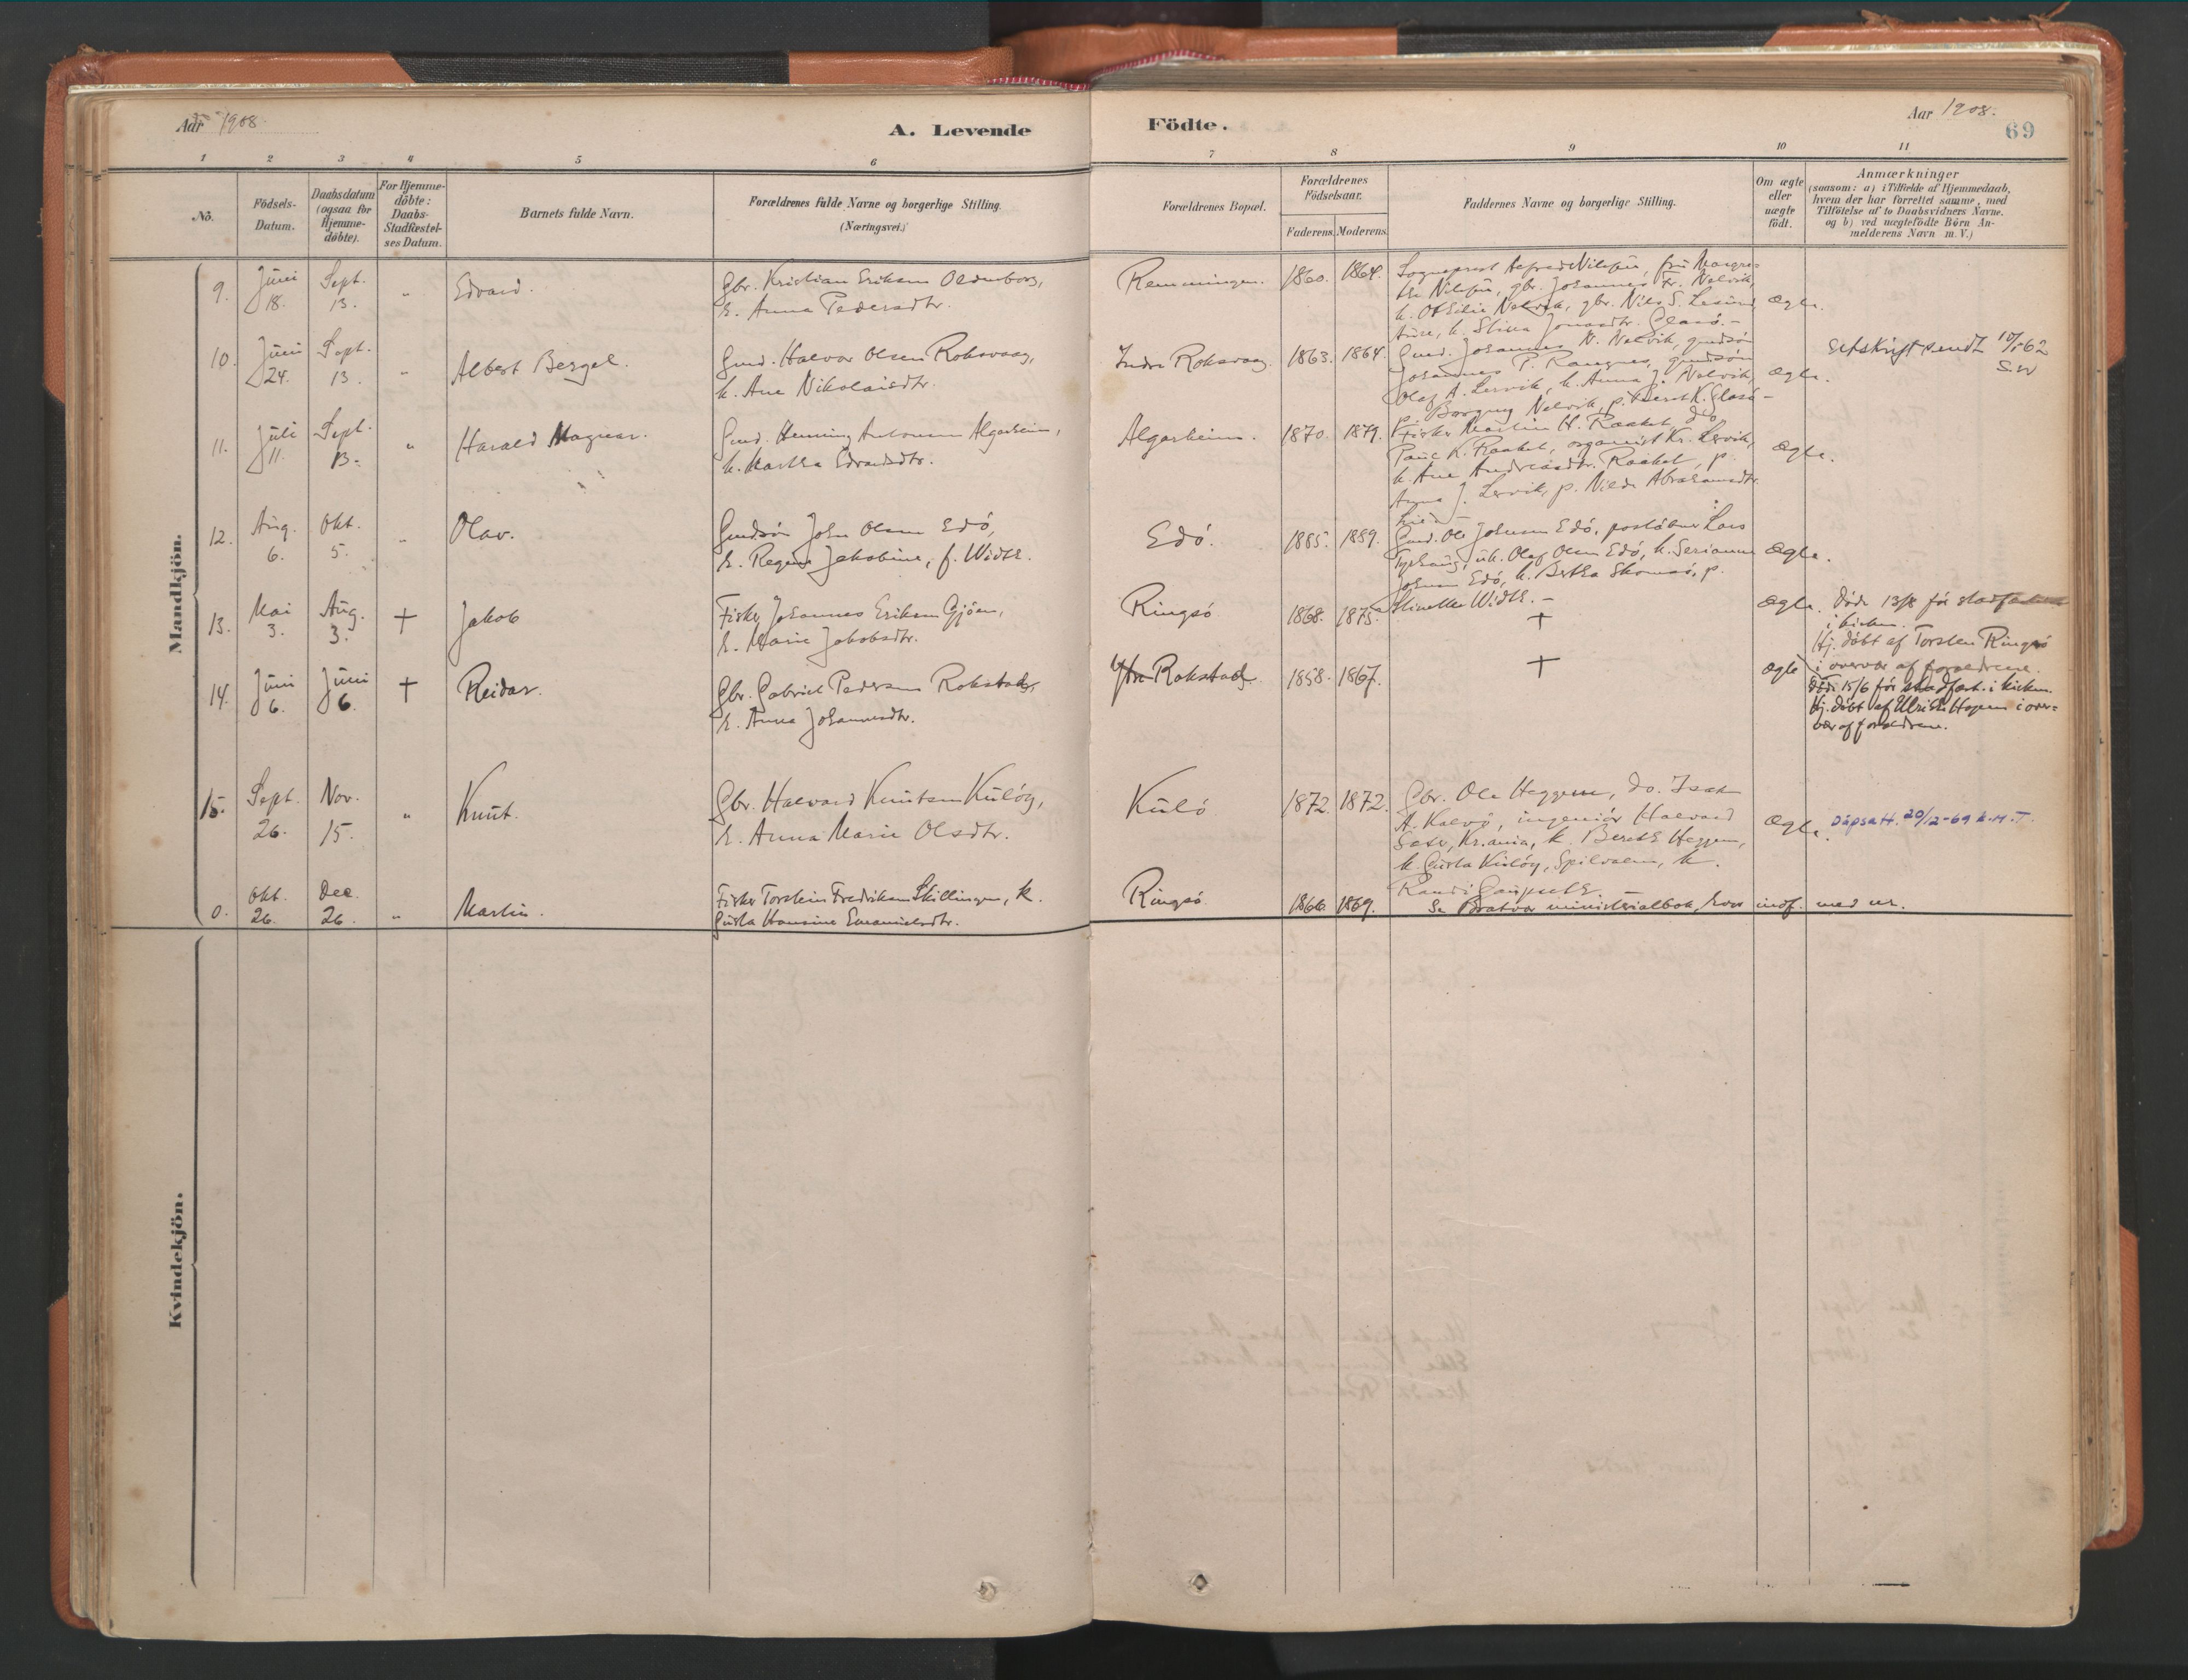 Aar 1908.
A. Levende
Födte.
Aar 1908.
69
1 2 3 4 5 6 7 8 9 10 11
No.
Födsels-
Datum.
Daabsdatum
(ogsaa for
Hjemme-
döbte).
For Hjemme-
döbte:
Daabs-
Stadfæstel-
ses Datum.
Barnets fulde Navn.
Forældrenes fulde Navne og borgerlige Stilling.
(Næringsvei.)
Forældrenes Bopæl.
Forældrenes
Födselsaar.
Faderens. Moderens.
Faddernes Navne og borgerlige Stilling.
Om ægte
eller
uægte
födt.
Anmærkninger
(saasom: a) i Tilfælde af Hjemmedaab,
hvem der har forrettet samme, med
Tilföielse af to Daabsvidners Navne.
og b) ved uægtefödte Börn An-
melderens Navn m. V.)
Mandkjön.
9. Juni 18. Sept. 13. " Edvard.
Gbr. Kristian Eriksen Oldenborg,
h. Anna Pedersdtr.
Remmingen. 1860. 1864.
Sogneprest Alfred Nilssen, fru Margre-
the Nilssen, gbr. Johannes Fr. Nelvik,
h. Othilie Nelvik, gbr. Nils S. Lesund,
Aure, h. Stina Jonasdtr. Glasö.-
Ægte.
10. Juni 24. Sept. 13. " Albert Bergel.
Gmd. Halvor Olsen Roksvaag,
h. Ane Nikolaisdtr.
Indre Roksvaag 1863. 1864.
Gmd. Johannes N. Nelvik, gmdsön
Johannes P. Rangnes, gmdsön
Olaf A. Lervik, h. Anna J. Nelvik,
p. Borgny Nelvik, p. Karst K. Glasö-
Ægte.
Utskrift sendt 10/5-62
S.W
11. Juli 11. Sept. 13. " Harald Magnar.
Gmd. Henning Antonsen Algarheim,
h. Martha Edvardsdtr.
Algarheim. 1870. 1879.
Fisker Martin H. Raaket, do
Paul K. Raaket, organist Kr. Lervik,
h. Ane Andreasdtr. Raaket, p.
Anna J. Lervik, p. Nilde Abrahamsdtr.
Ægte.
12. Aug. 6. Okt. 5. " Olav.
Gmdsön John Olsen Edö,
h. Regine Jakobine, f. Width.
Edö. 1885. 1889.
Gmd. Ole Johnsen Edö, postaabner Lars
Tyrhaug, uk. Olaf Olsen Edö, h. Serianna
Johnsen Edö, h. Bertha Skomsö, p.
Stinette Width.-
Ægte.
13. Mai 3. Aug. 3. + Jakob
Fisker Johannes Eriksen Gjöen,
h. Marie Jakobsdtr.
Ringsö 1868. 1875. +
Ægte.
Döde 13/8 för stadfæstelse
i kirken.
Hj. döbt af Torsten Ringsö
i overvær af forældrene.
14. Juni 6. Juni 6. + Reidar.
Gbr. Gabriel Pedersen Rokstad,
h. Anna Johannesdtr.
Ytre Rokstad. 1858. 1867. +
Ægte
Död 15/6 för stadfæst. i kirken.
Hj. döbt af Ulrich Hopen i over=
vær af forældrene.
15. Sept. 26. Nov. 15. " Knut.
Gbr. Halvard Knutsen Kulöy,
h. Anna Marie Olsdtr.
Kulö 1872. 1872.
Gbr. Ole Heggem, do. Isak
A. Kalvö, ingeniör Halvard
Sæter, Kr.ania, h. Bereth Heggem,
h. Gurla Kulöy, Spilvalen, h.
Randi Gaupseth.
Ægte.
Dåpsatt. 20/2-69 K.M.T.
0. Okt. 26. Dec. 26. " Martin.
Fisker Torstein Fredriksen Skillingen, h.
Gurla Hansine Emanuelsdtr.
Ringsö 1866. 1869.
Se Bratvær ministerialbok, hvor indf. med nr.
Kvindekjön.